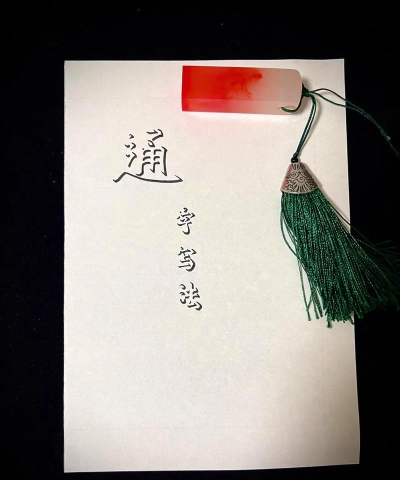 通
字写法